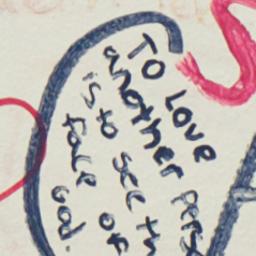 TO LOVE
another pers
is to see th
face of
God.